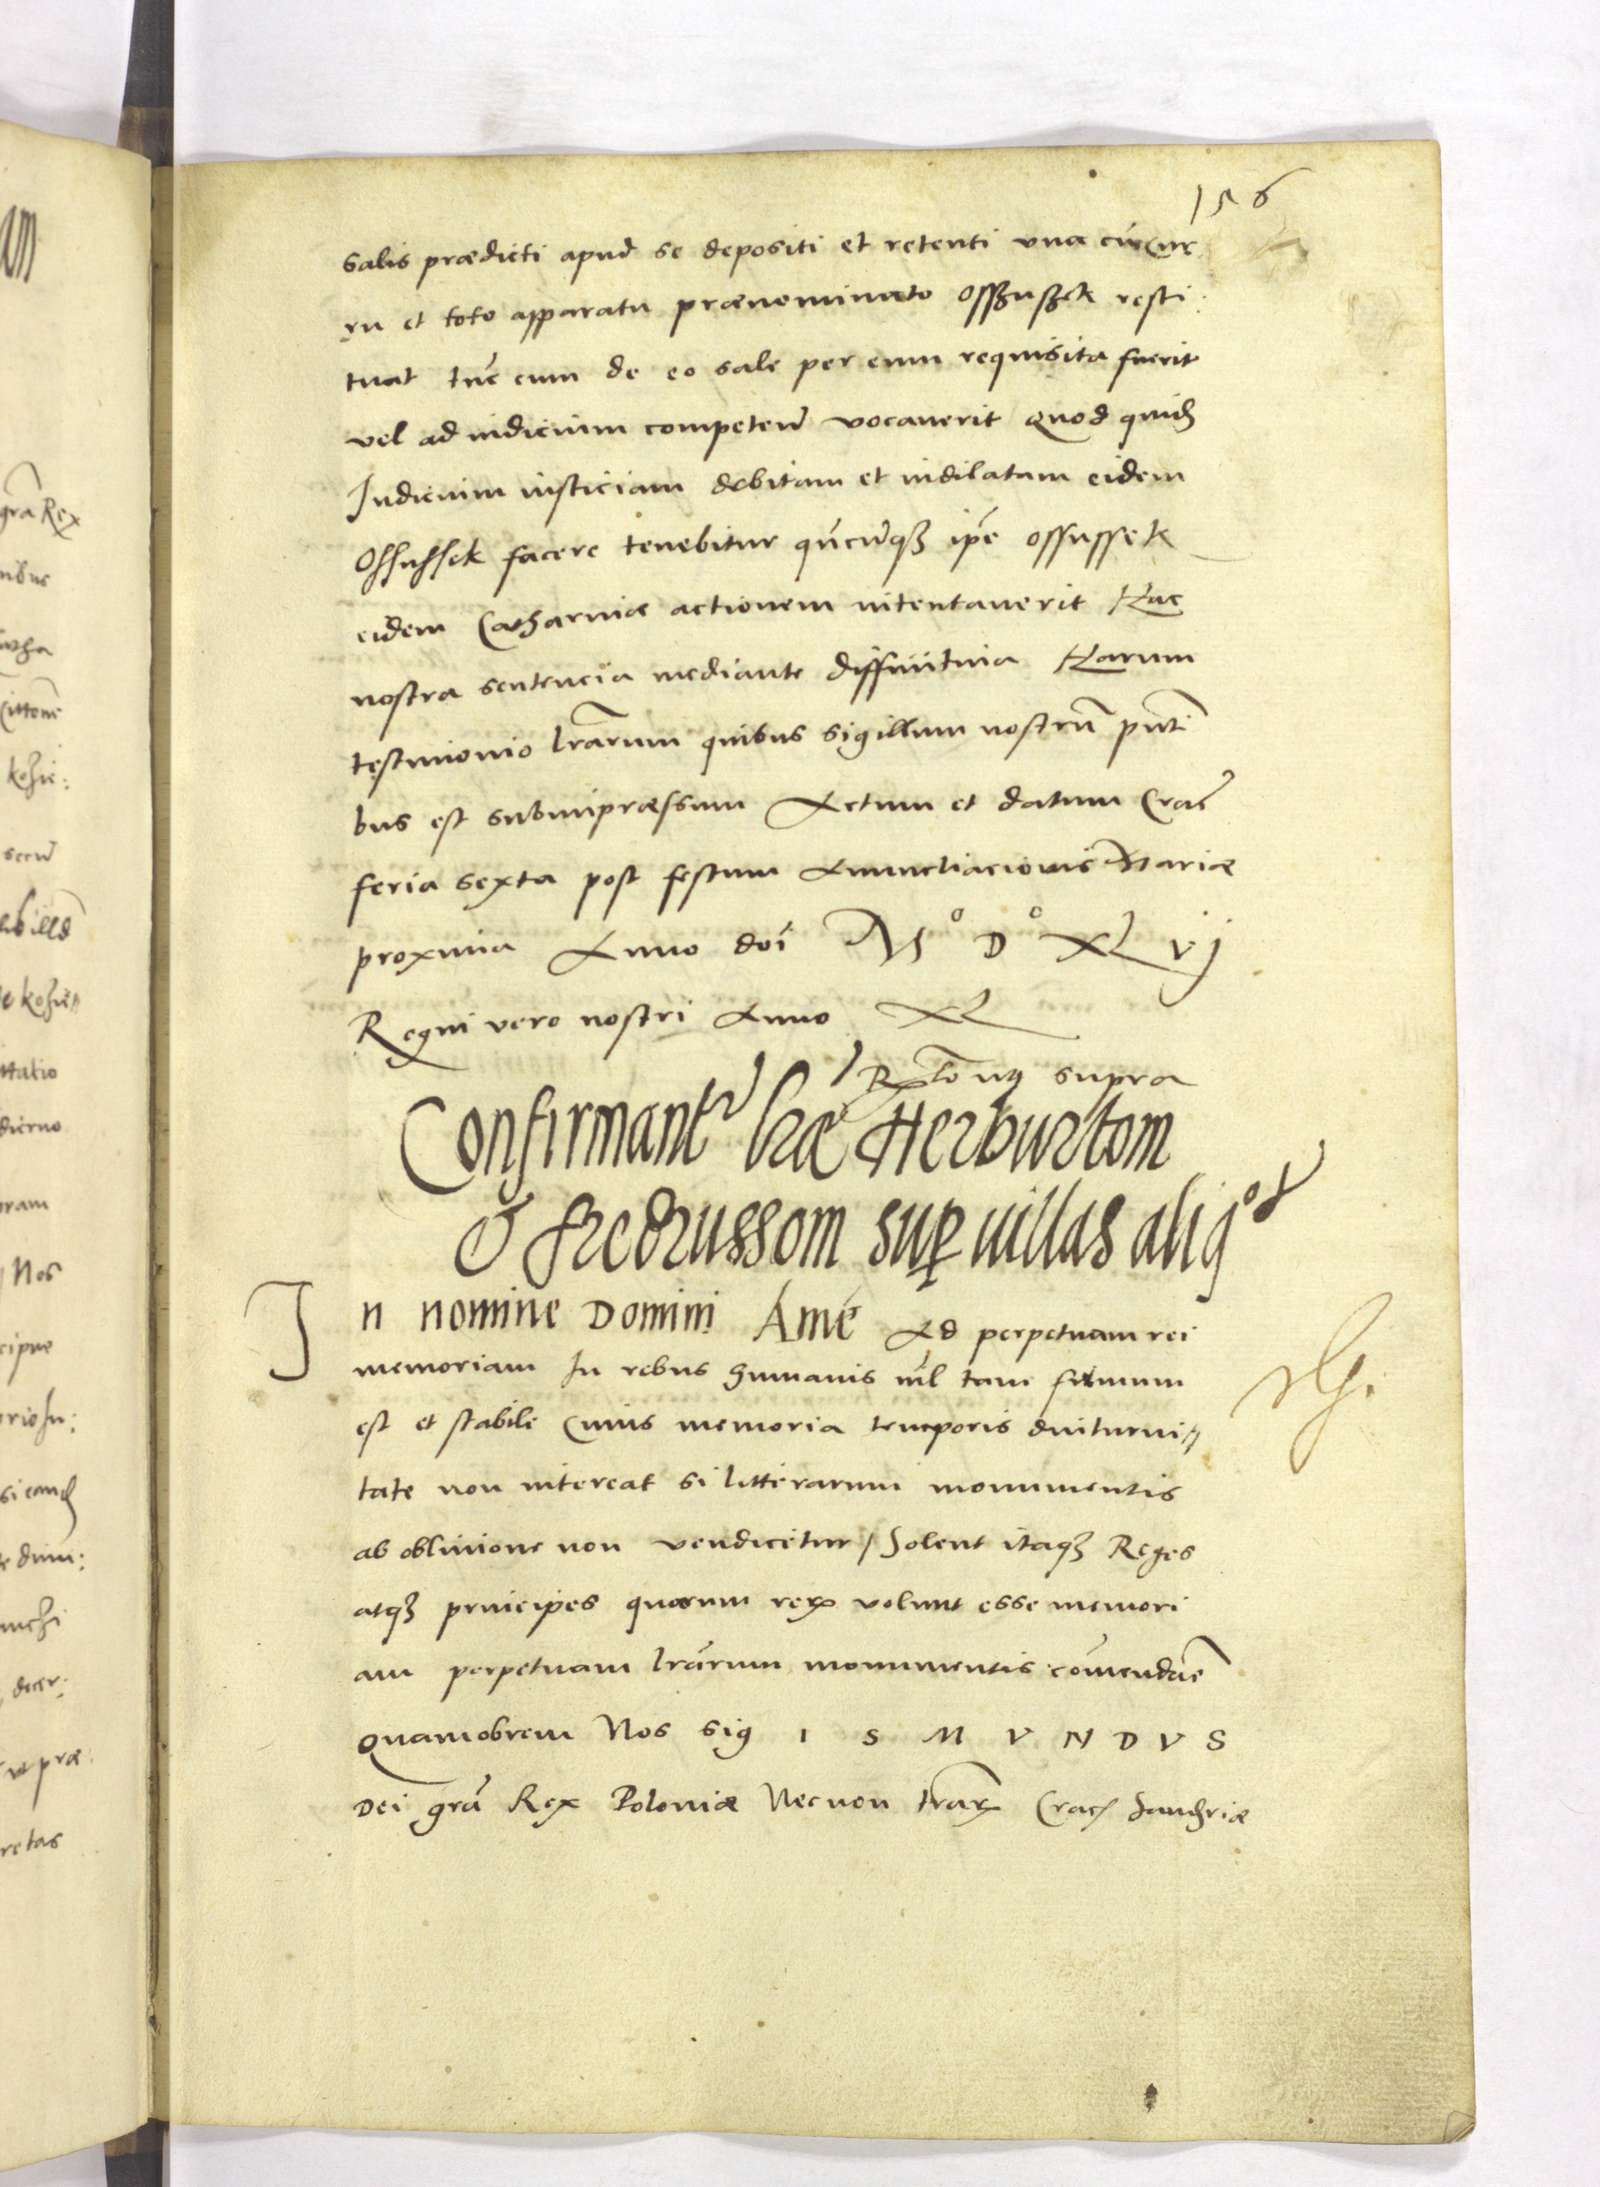 156
salis prædicti apud se depositi et retenti vna cū cur
ru et toto apparatu prænominato Osszuszek resti:
tuat tūc cum de eo sale per eum requisita fuerit
vel ad iudicium competeñ vocauerit Quod quidē
Iudicium iusticiam debitam et indilatam eidem
Ossussek facere tenebitur qūcūqȝ ipē ossussek
eidem Catharinæ actionem intentauerit Hac
nostra sentencia mediante diffinitiua Harum
testimonio lrārum quibus sigillum nostrū pñti
bus est subimpræssum Actum et datum Crac̃
feria sexta post festum Anuncciacionis Mariæ
proxima Anno doī M° D° XL vj
Regni vero nostri Anno XL
supra
Confirmantr lræ Herburtom
& fredrussom suꝑ uillas aliq°t
In nomine Domini Amē Ad perpetuam rei
memoriam In rebus humanis nīl tam firmum
est et stabile Cuius memoria temporis diuturni//
tate non intereat si litterarum monumentis
ab obliuione non vendicetur / Solent itaqȝ Reges
atqȝ principes quarum reꝝ volunt esse memori
am perpetuam lrārum monumentis cōmendare
Quamobrem Nos Sig I S M V N D V S
Dei grā Rex Poloniæ Necnon trāꝝ Crac Sandriæ